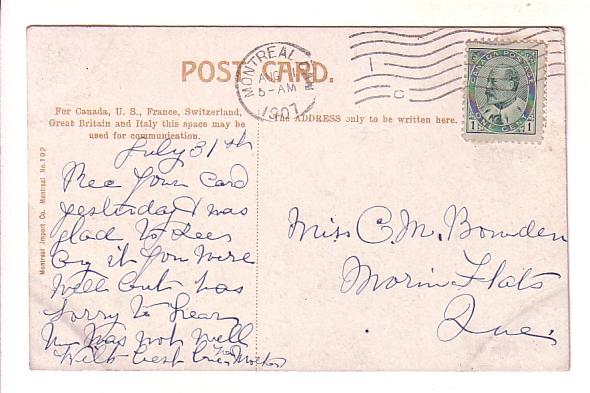 POST CARD.
MONTREAL CAN
AUG
5-AM
1907
1
C
CANADA POSTAGE
1 ONE CENT 1
For Canada, U. S., France, Switzerland,
Great Britain and Italy this space may be
used for communication.
The ADDRESS only to be written here.
Montreal Import Co. Montreal No. 192
July 31th
Rec your card
yesterday & was
glad to see
by it you were
well but was
sorry to hear
M was not well
With best love from Mother
Miss C. M. Bowden
Morin Flats
Que.